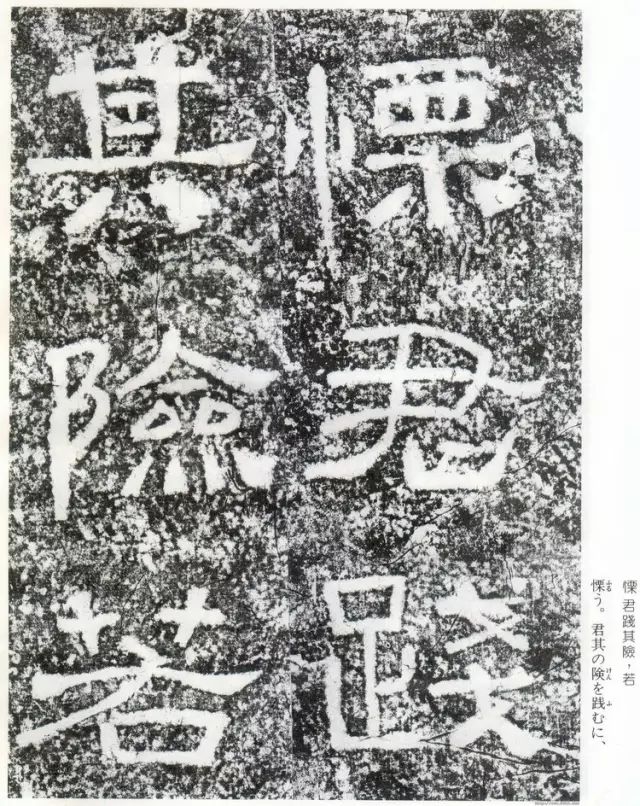 慄君踐
其險若
慄君踐其險，若
慄う。君其の険を践むに、